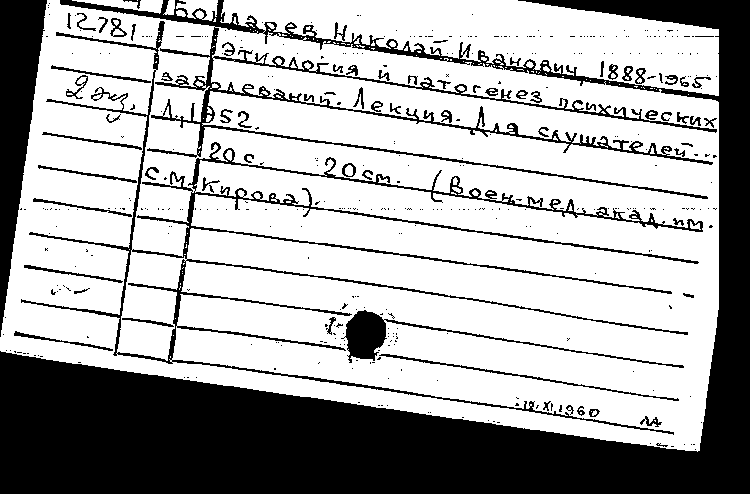 Бондарев, Николай Иванович, 1888-1965
12781
Этиология и патогенез психических
заболеваний. Лекция. Для слушателей...
2 экз.
Л., 1952.
20 с. 20 см. (Воен.-мед. акад. им.
С.М. Кирова).
12.XI.1960